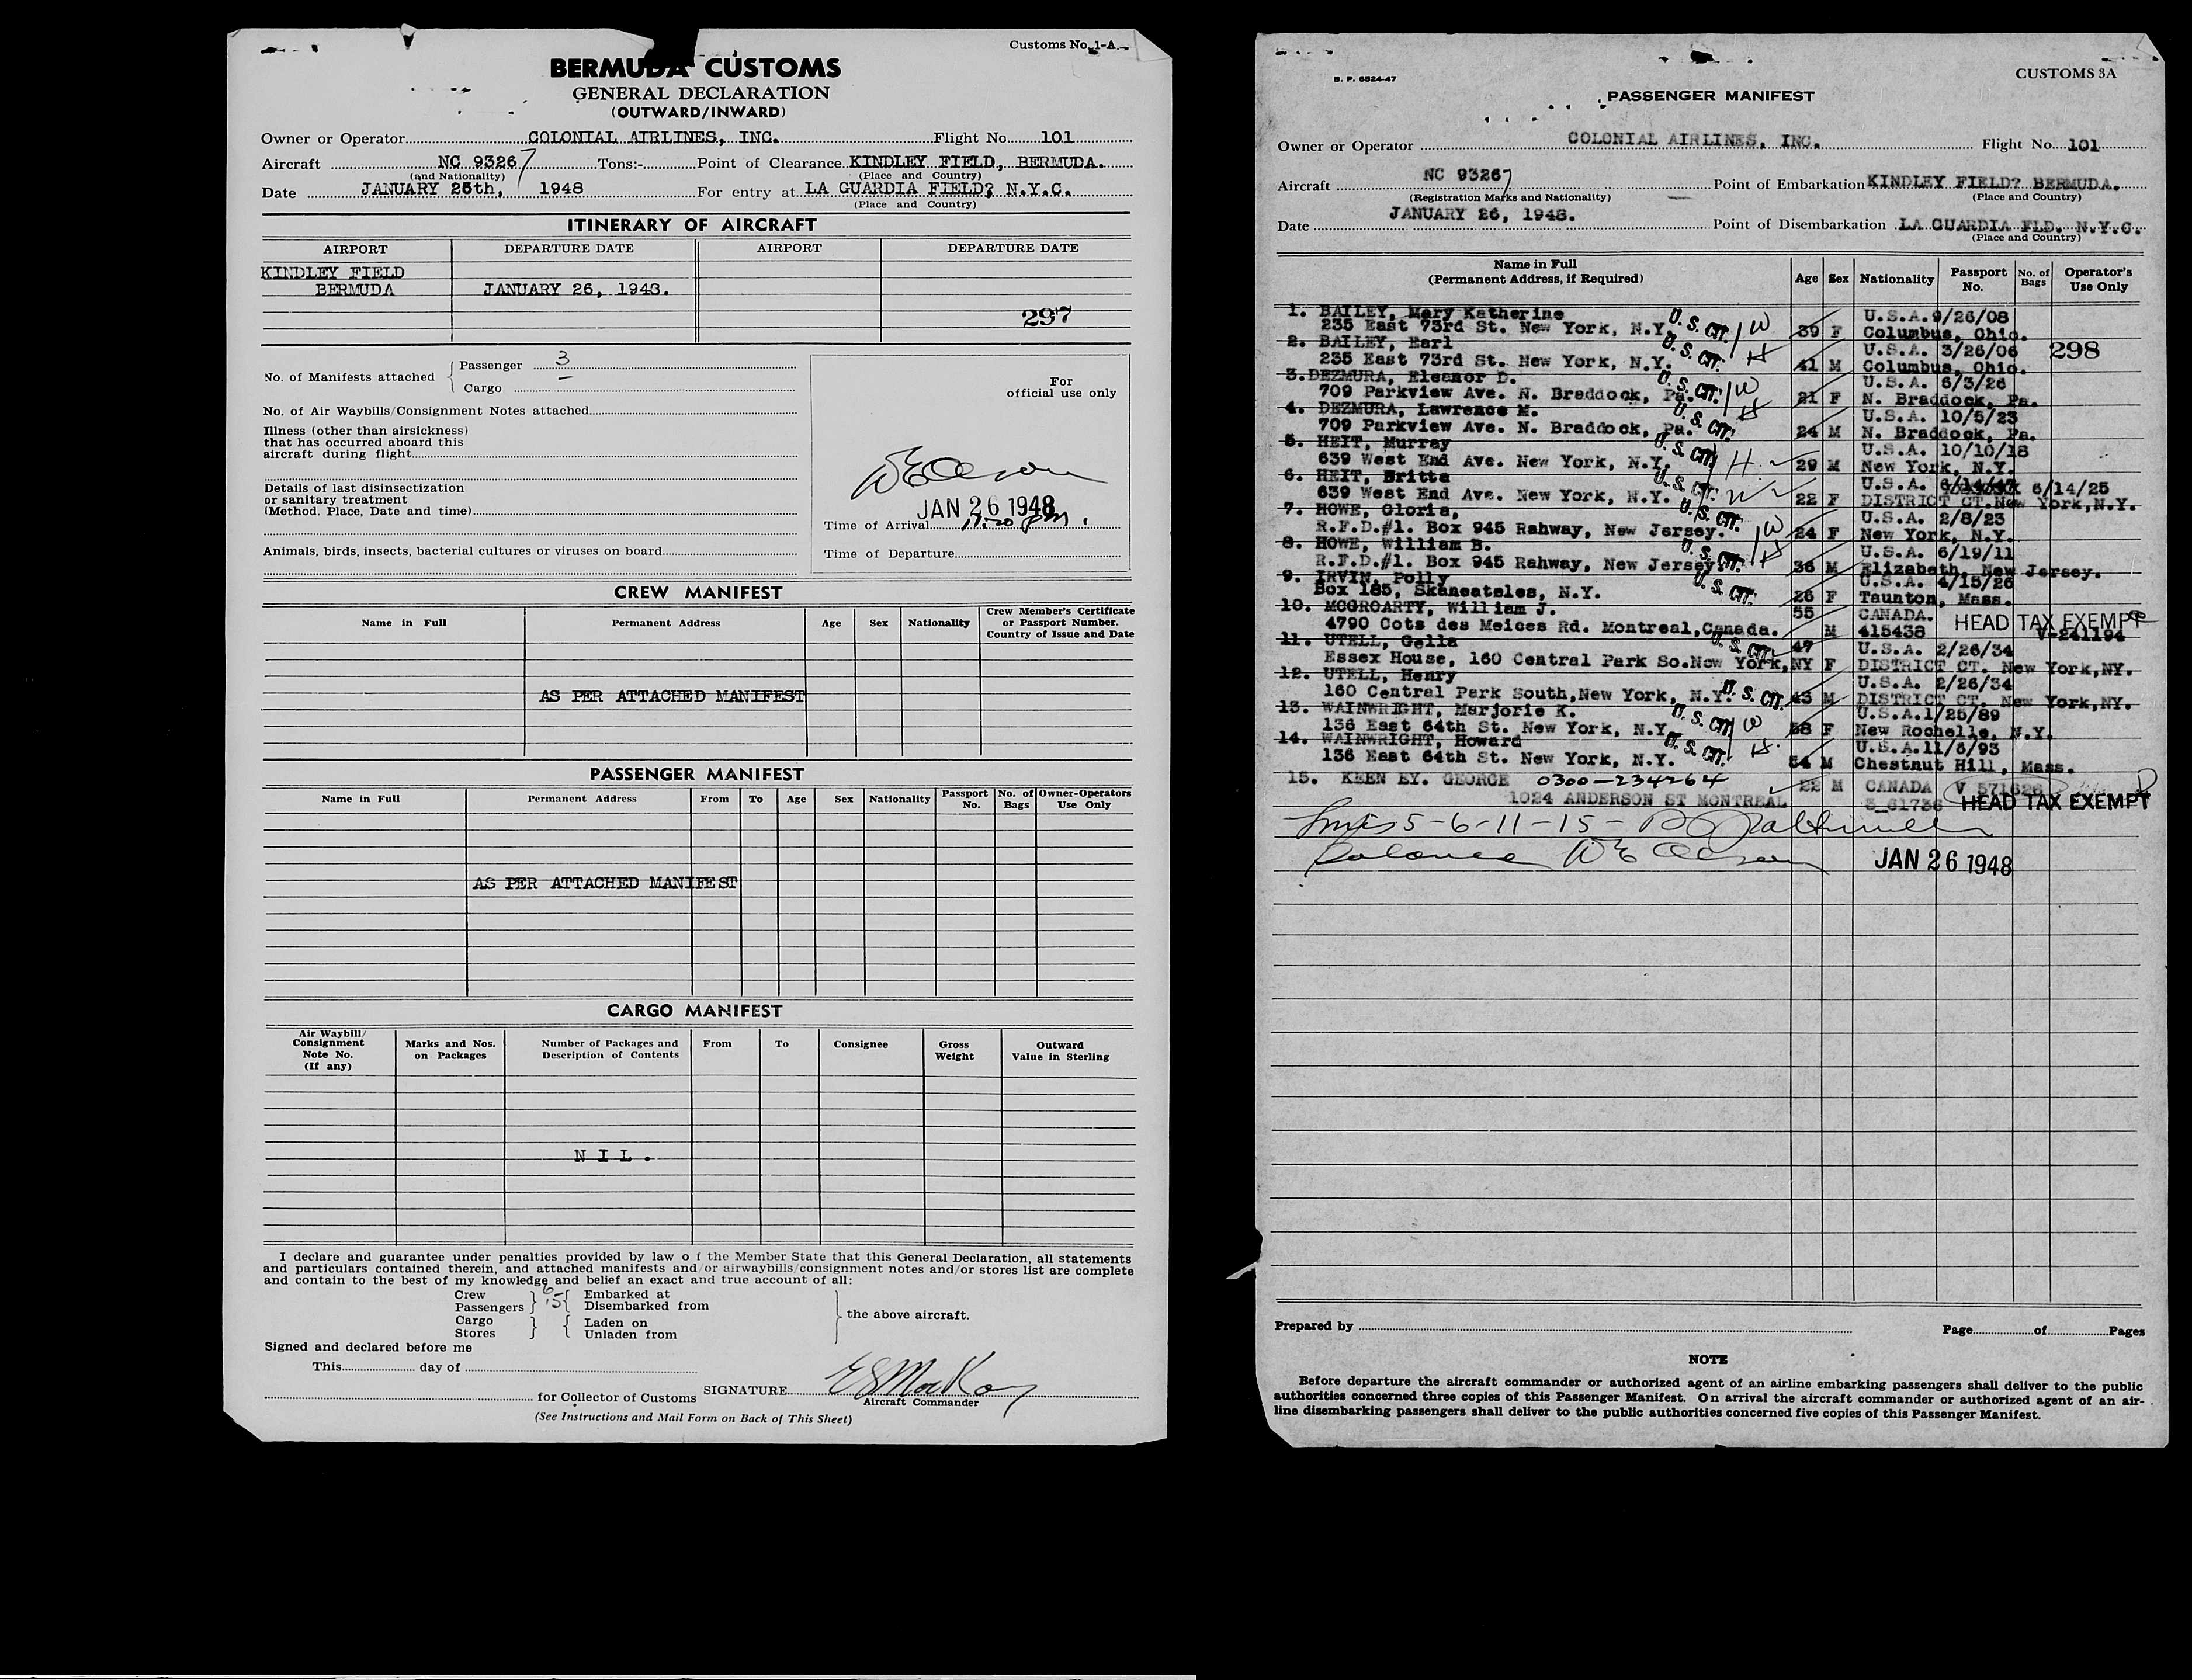 Customs No. 1-A
BERMUDA CUSTOMS
GENERAL DECLARATION
(OUTWARD/INWARD)
Owner or Operator COLONIAL AIRLINES, INC. Flight No. 101
Aircraft NC 93267 Tons:- Point of Clearance KINDLEY FIELD, BERMUDA.
(and Nationality) (Place and Country)
Date JANUARY 26th, 1948 For entry at LA GUARDIA FIELD? N.Y.C.
(Place and Country)
ITINERARY OF AIRCRAFT
AIRPORT DEPARTURE DATE AIRPORT DEPARTURE DATE
KINDLEY FIELD
BERMUDA JANUARY 26, 1948.
297
No. of Manifests attached
Passenger 3
Cargo –
For
official use only
No. of Air Waybills/Consignment Notes attached
Illness (other than airsickness)
that has occurred aboard this
aircraft during flight
Details of last disinsectization
or sanitary treatment
(Method, Place, Date and time)
JAN 26 1948
Time of Arrival
Animals, birds, insects, bacterial cultures or viruses on board
Time of Departure
CREW MANIFEST
Name in Full Permanent Address Age Sex Nationality Crew Member's Certificate
or Passport Number.
Country of Issue and Date
AS PER ATTACHED MANIFEST
PASSENGER MANIFEST
Name in Full Permanent Address From To Age Sex Nationality Passport No. No. of Bags Owner-Operators Use Only
AS PER ATTACHED MANIFEST
CARGO MANIFEST
Air Waybill/
Consignment
Note No.
(If any)
Marks and Nos.
on Packages
Number of Packages and
Description of Contents
From To Consignee
Gross
Weight
Outward
Value in Sterling
N I L .
I declare and guarantee under penalties provided by law o f the Member State that this General Declaration, all statements
and particulars contained therein, and attached manifests and/or airwaybills/consignment notes and/or stores list are complete
and contain to the best of my knowledge and belief an exact and true account of all:
Crew 6 Embarked at
Passengers 15 Disembarked from
the above aircraft.
Cargo Laden on
Stores Unladen from
Signed and declared before me
This day of
for Collector of Customs SIGNATURE
Aircraft Commander
(See Instructions and Mail Form on Back of This Sheet)
B. P. 6524-47
CUSTOMS 3A
PASSENGER MANIFEST
Owner or Operator COLONIAL AIRLINES, INC. Flight No. 101
Aircraft NC 93267 Point of Embarkation KINDLEY FIELD? BERMUDA.
(Registration Marks and Nationality) (Place and Country)
Date JANUARY 26, 1948. Point of Disembarkation LA GUARDIA FLD. N.Y.C.
(Place and Country)
Name in Full
(Permanent Address, if Required)
Age Sex Nationality Passport No. No. of Bags Operator's Use Only
1. BAILEY, Mary Katherine U.S. CIT. W U.S.A. 9/26/08
235 East 73rd St. New York, N.Y. 39 F Columbus, Ohio.
2. BAILEY, Earl U.S. CIT. H U.S.A. 3/26/06 298
235 East 73rd St. New York, N.Y. 41 M Columbus, Ohio.
3. DEZMURA, Eleanor D. U.S. CIT. W U.S.A. 6/3/26
709 Parkview Ave. N. Braddock, Pa. 21 F N. Braddock, Pa.
4. DEZMURA, Lawrence M. U.S. CIT. H U.S.A. 10/5/23
709 Parkview Ave. N. Braddock, Pa. 24 M N. Braddock, Pa.
5. HEIT, Murray U.S. CIT. H. U.S.A. 10/10/18
639 West End Ave. New York, N.Y. 29 M New York, N.Y.
6. HEIT, Britta U.S. CIT. W U.S.A. 6/14/25
639 West End Ave. New York, N.Y. 22 F DISTRICT CT. New York, N.Y.
7. HOWE, Gloria, U.S. CIT. W U.S.A. 2/8/23
R.F.D.#1. Box 945 Rahway, New Jersey. 24 F New York, N.Y.
8. HOWE, William B. U.S. CIT. H U.S.A. 6/19/11
R.F.D.#1. Box 945 Rahway, New Jersey. 36 M Elizabeth, New Jersey.
9. IRVIN, Polly U.S. CIT. U.S.A. 4/15/26
Box 185, Skaneateles, N.Y. 26 F Taunton, Mass.
10. MCGROARTY, William J. 55 CANADA. HEAD TAX EXEMPT
4790 Cots des Meices Rd. Montreal, Canada. M 415438 V-241194
11. UTELL, Gella U.S. CIT. 47 U.S.A. 2/26/34
Essex House, 160 Central Park So. New York, NY F DISTRICT CT. New York, NY.
12. UTELL, Henry U.S.A. 2/26/34
160 Central Park South, New York, N.Y. U.S. CIT. 43 M DISTRICT CT. New York, NY.
13. WAINWRIGHT, Marjorie K. U.S. CIT. W U.S.A. 1/25/89
136 East 64th St. New York, N.Y. 58 F New Rochelle, N.Y.
14. WAINWRIGHT, Howard U.S. CIT. H. U.S.A. 11/6/93
136 East 64th St. New York, N.Y. 54 M Chestnut Hill, Mass.
15. KEEN EY. GEORGE 0300-234264 22 M CANADA
1024 ANDERSON ST MONTREAL HEAD TAX EXEMPT
5-6-11-15-
JAN 26 1948
Prepared by Page of Pages
NOTE
Before departure the aircraft commander or authorized agent of an airline embarking passengers shall deliver to the public
authorities concerned three copies of this Passenger Manifest. On arrival the aircraft commander or authorized agent of an air-
line disembarking passengers shall deliver to the public authorities concerned five copies of this Passenger Manifest.